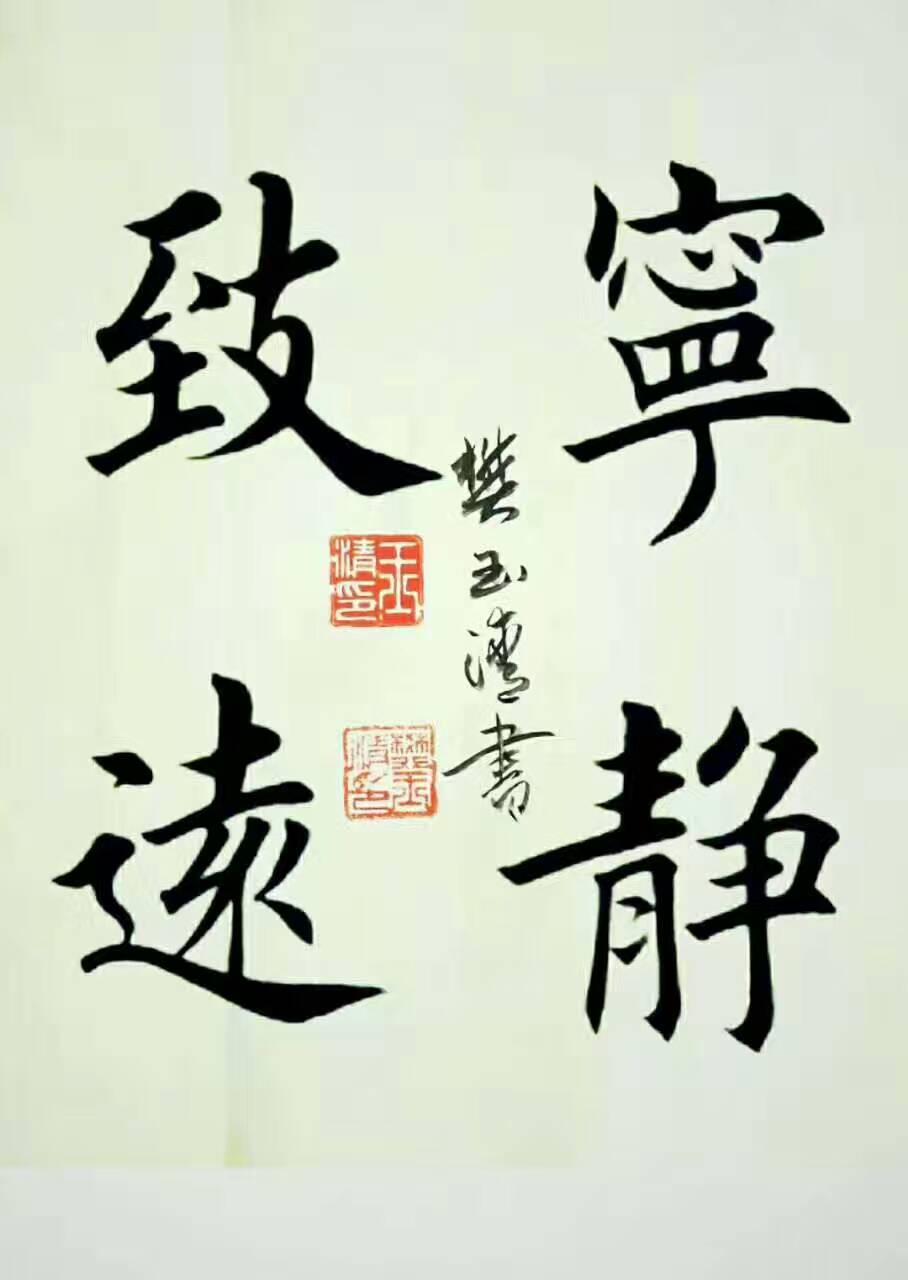 寧静
致遠
樊玉清書
玉清印
樊玉清印